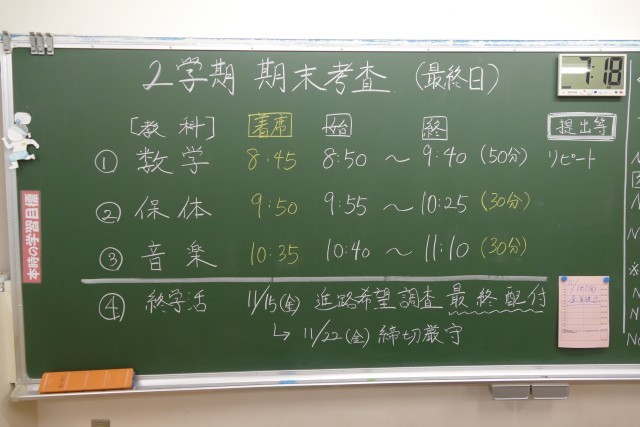 2学期 期末考査 (最終日)
7:18
[教科] 着席 始 終 提出等
① 数学 8:45 8:50 ～ 9:40 (50分) リピート
② 保体 9:50 9:55 ～ 10:25 (30分)
③ 音楽 10:35 10:40 ～ 11:10 (30分)
④ 終学活 11/15(金) 進路希望調査 最終配付
↳ 11/22(金) 締切厳守
本時の学習目標